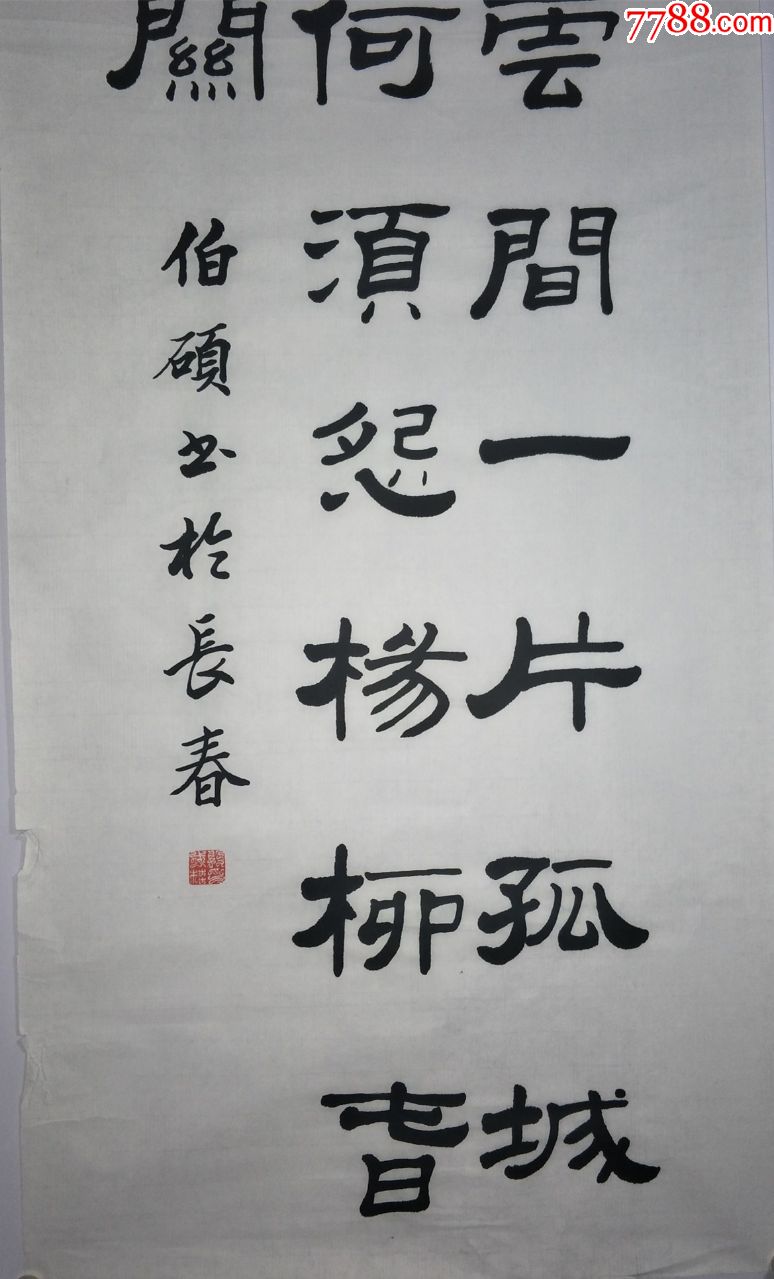 7788.com
雲間一片孤城
何須怨楊柳春
關
伯碩書於長春